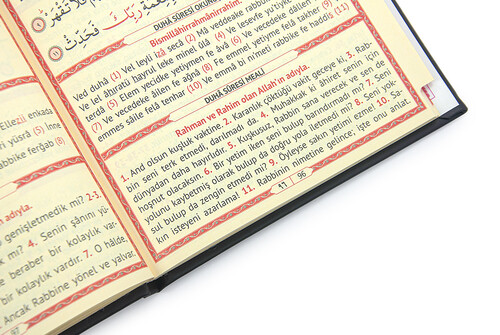 رَبِّكَ فَحَدِّثْ ﴿١١﴾
DUHÂ SÛRESİ
Bismillâhirrahmânirrahîm.
Ved duhâ (1) Vel leyli izâ secâ (2) Mâ veddeake
Ve lel âhıratü hayrul leke minel ûlâ (4) Ve lesevfe
terdâ (5) Elem yecidke yetîymen fe âvâ (6) Ve vecedeke
(7) Ve vecedeke âilen fe ağnâ (8) Fe emmel yetîyme felâ takher (9) Ve
emmes sâile felâ tenhar (10) Ve emmâ bi nı'meti rabbike fe haddis (11)
DUHÂ SÛRESİ MEALİ
Rahman ve Rahîm olan Allah'ın adıyla.
1. And olsun kuşluk vaktine. 2. Karanlık çöktüğü vakit geceye ki, 3. Rab-
bin seni terk etmedi, darılmadı da. 4. Muhakkak ki âhiret senin için
dünyadan daha hayırlıdır. 5. Kuşkusuz, Rabbin sana verecek ve sen de
hoşnut olacaksın. 6. Bir yetim iken seni bulup barındırmadı mı? 7. Seni
yolunu kaybetmiş olarak bulup da doğru yola iletmedi mi? 8. Seni yok-
sul bulup da zengin etmedi mi? 9. Öyleyse sakın yetimi ezme! 10. Sa-
kın isteyeni azarlama! 11. Rabbinin nimetine gelince; işte onu anlat.
96
Ellezî enkada
yüsrâ (5) İnne
rabbike ferğab (8)
adıyla.
genişletmedik mi? 2-3.
mi? 4. Senin şânını yü-
beraber bir kolaylık var-
bir kolaylık vardır. 7. O hâlde,
Ancak Rabbine yönel ve yalvar.
97